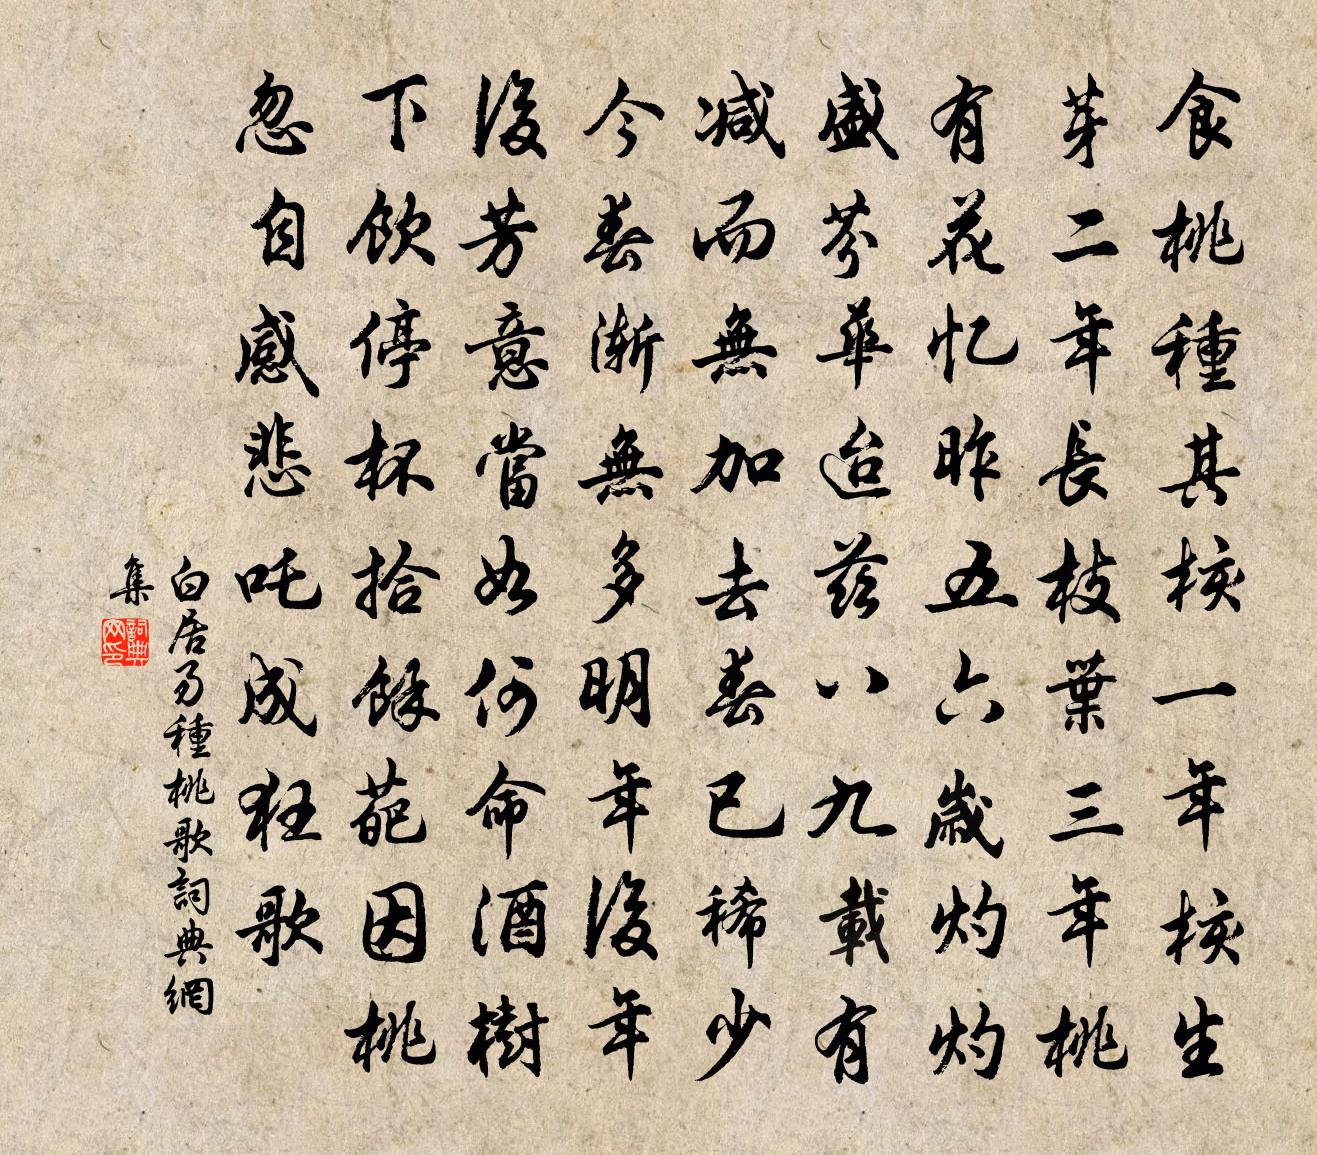 食桃種其核一年核生
芽二年長枝葉三年桃
有花忆昨五六歲灼灼
盛芬華迨茲八九載有
減而無加去春已稀少
今春漸無多明年後年
後芳意當如何命酒樹
下飲停杯拾餘葩因桃
忽自感悲吒成狂歌
白居易種桃歌詞典網
集
詞典
网印